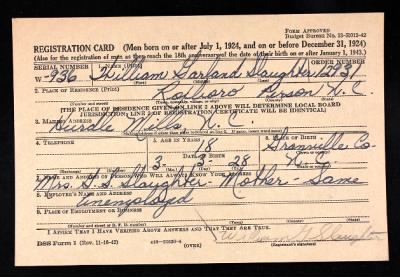 FORM APPROVED
Budget Bureau No. 33-R012-42
REGISTRATION CARD (Men born on or after July 1, 1924, and on or before December 31, 1924)
(Also for the registration of men as they reach the 18th anniversary of the date of their birth on or after January 1, 1943.)
SERIAL NUMBER 1. NAME (Print) ORDER NUMBER
W-936 William Garland Slaughter 12931
2. PLACE OF RESIDENCE (Print)
Roxboro Person N.C.
[THE PLACE OF RESIDENCE GIVEN ON LINE 2 ABOVE WILL DETERMINE LOCAL BOARD
JURISDICTION; LINE 2 OF REGISTRATION CERTIFICATE WILL BE IDENTICAL]
3. MAILING ADDRESS
Hurdle Mills N.C.
4. TELEPHONE 5. AGE IN YEARS 6. PLACE OF BIRTH
18 Granville Co.
DATE OF BIRTH
3 - 3 - 28 N.C.
7. NAME AND ADDRESS OF PERSON WHO WILL ALWAYS KNOW YOUR ADDRESS
Mrs. Slaughter - Mother - Same
8. EMPLOYER'S NAME AND ADDRESS
Unemployed
9. PLACE OF EMPLOYMENT OR BUSINESS
I AFFIRM THAT I HAVE VERIFIED ABOVE ANSWERS AND THAT THEY ARE TRUE.
William G. Slaughter
DSS Form 1 (Rev. 11-16-42) (OVER) (Registrant's signature)